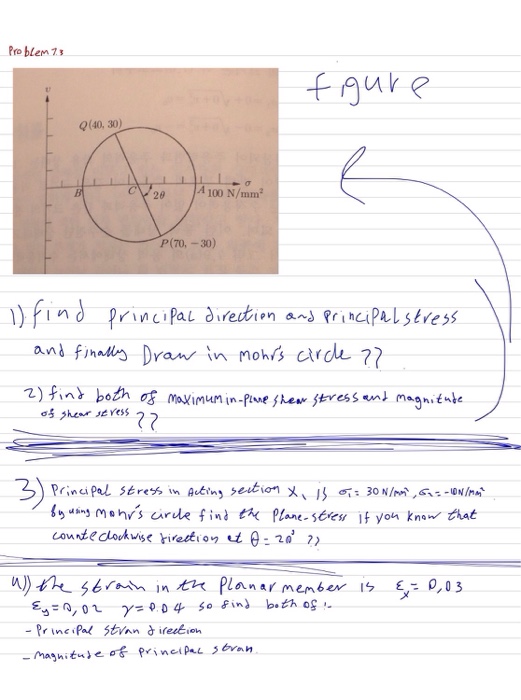 Problem 7.3
figure
τ
Q(40, 30)
B C 2θ A 100 N/mm² σ
P(70, −30)
1) find principal direction and principal stress
and finally Draw in mohr's circle ??
2) find both of maximum in-plane shear stress and magnitude
of shear stress ??
3) Principal stress in Acting section X, is σ₁ = 30 N/mm², σ₂ = -10 N/mm²
by using mohr's circle find the plane-stress if you know that
counteclockwise direction at θ = 20° ??
4)) the strain in the planar member is εx = 0,03
εy = 0,02 γ = 0.04 so find both of :-
- Principal stran direction
- magnitude of principal stran.